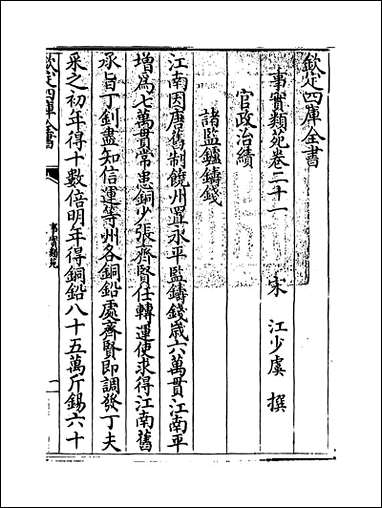 欽定四庫全書
事實類苑卷二十一
宋 江少虞 撰
官政治績
諸監鑪鑄錢
江南因唐舊制饒州置永平監鑄錢歲六萬貫江南平
增為七萬貫常患銅少張齊賢任轉運使求得江南舊
承旨丁釗盡知信運等州各銅鉛處齊賢即調發丁夫
采之初年得十數倍明年得銅鉛八十五萬斤錫六十
欽定四庫全書
事實類苑
一